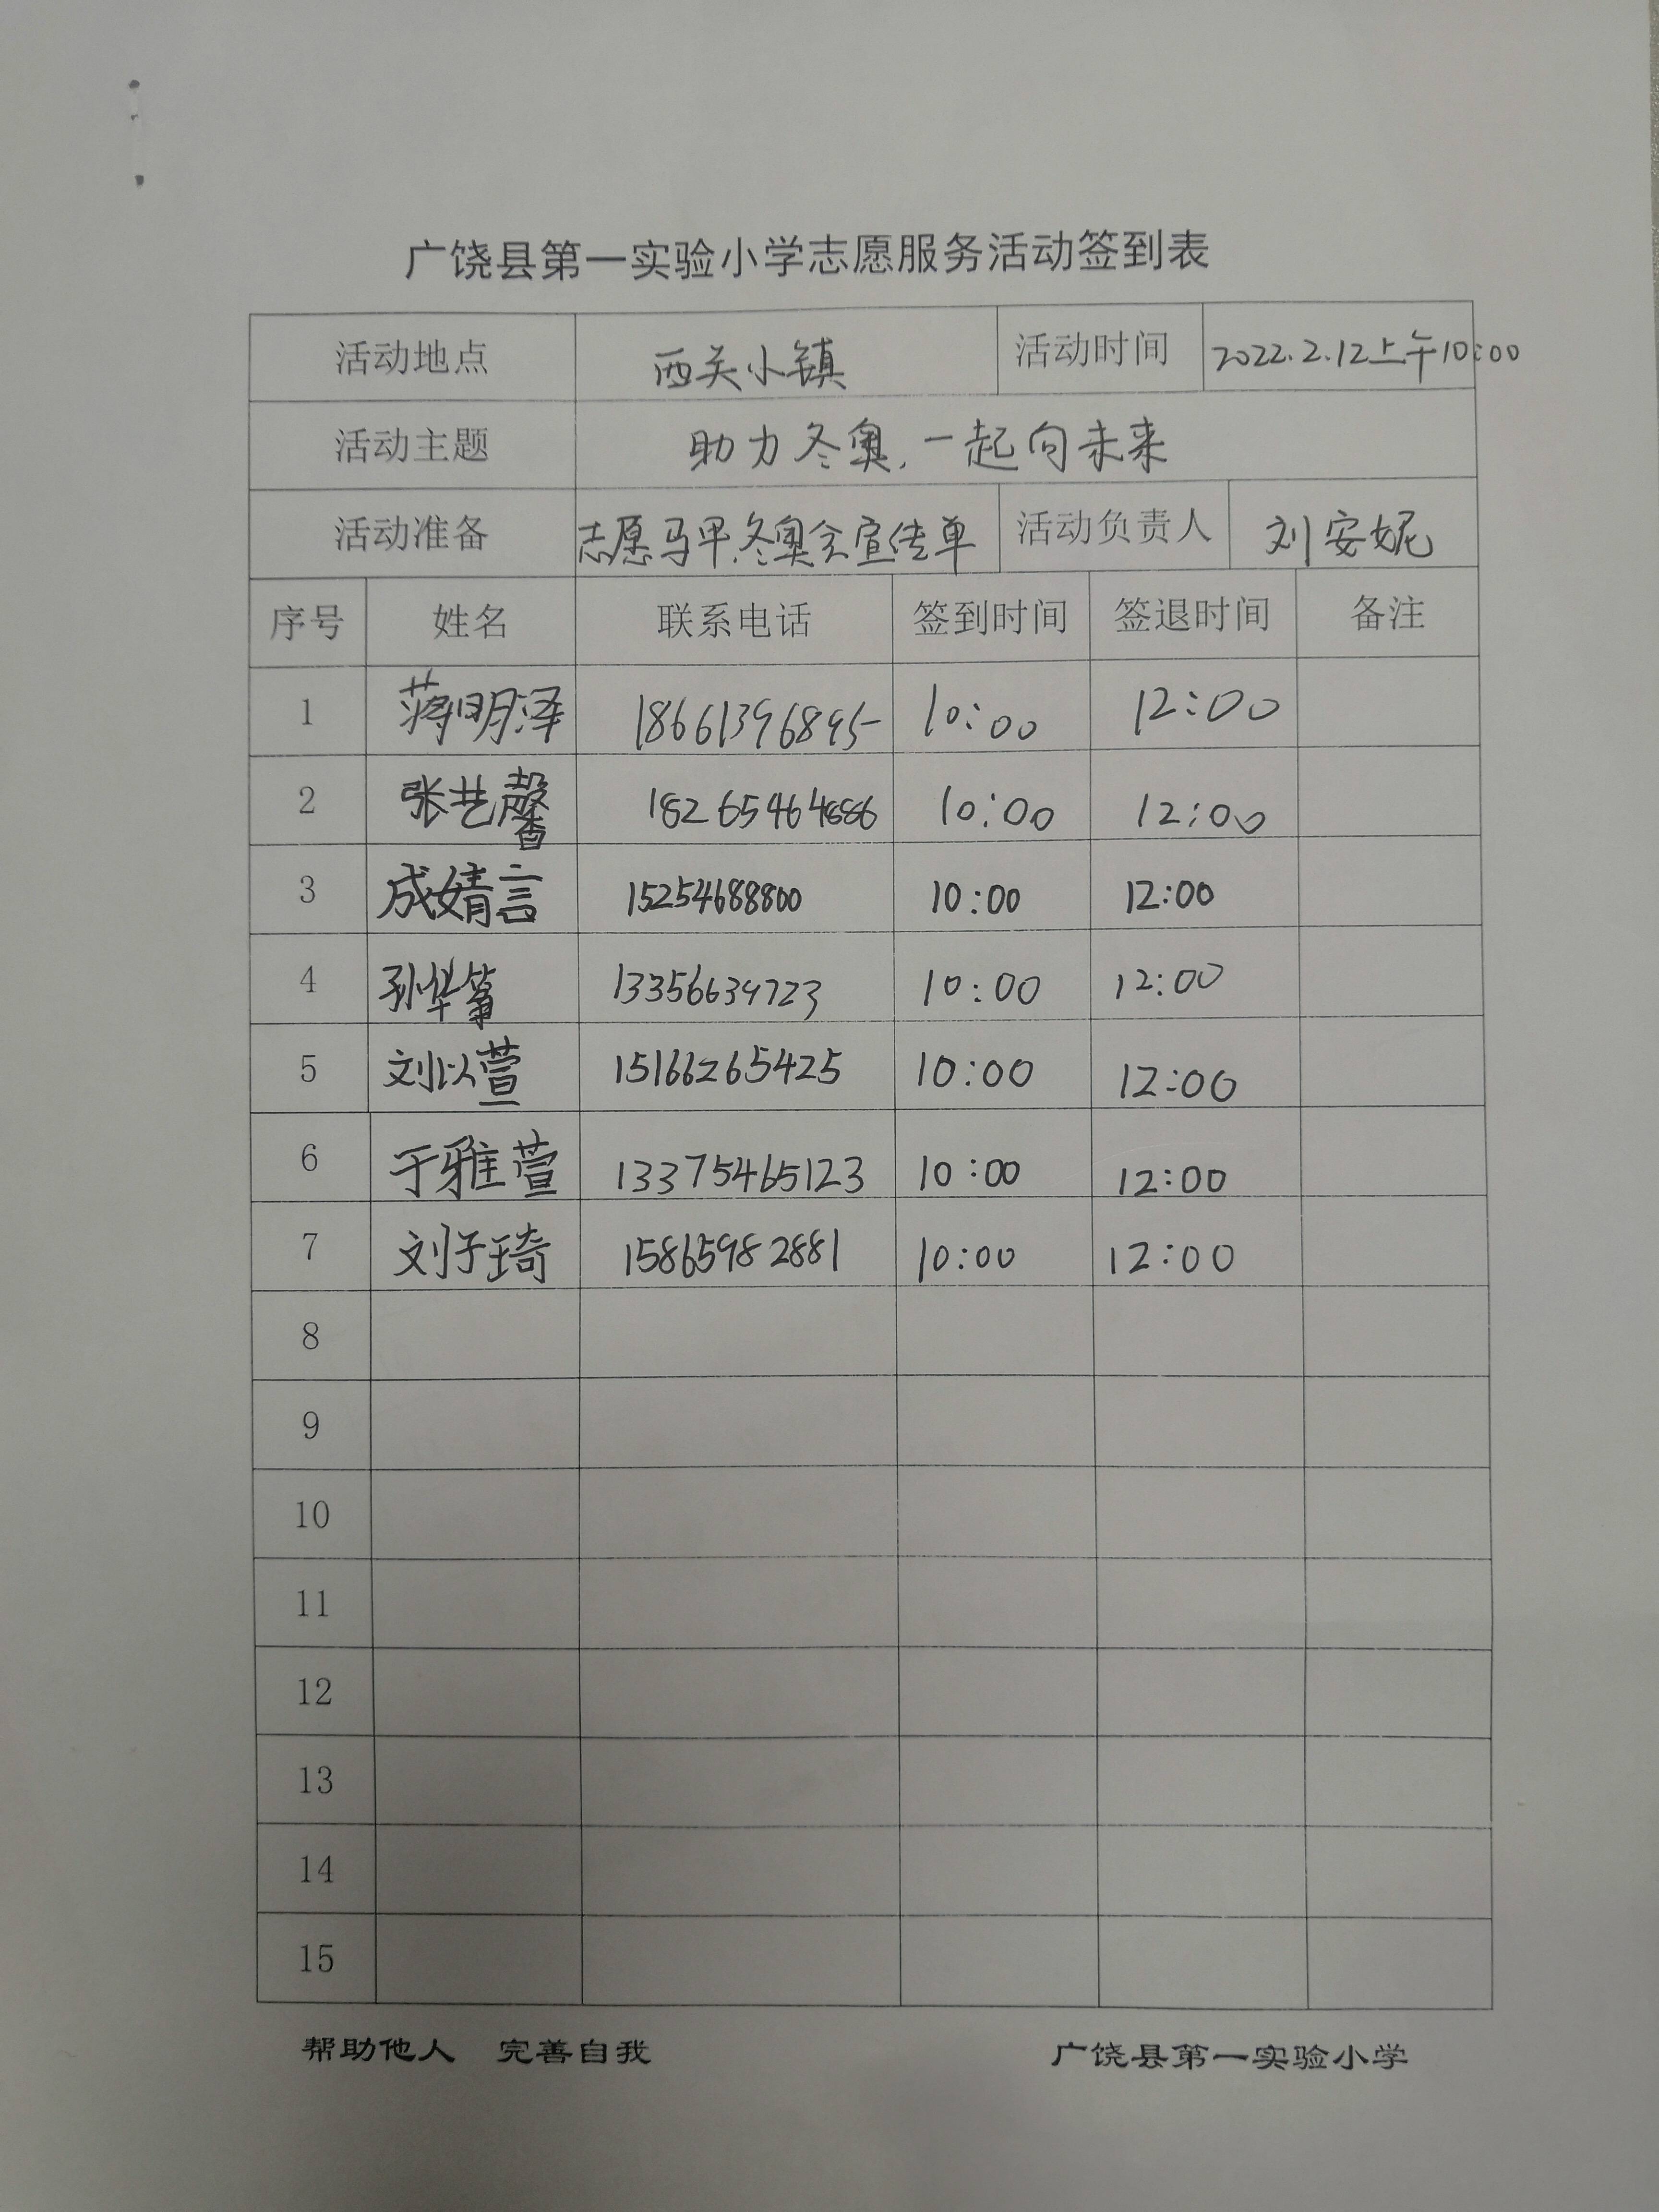 广饶县第一实验小学志愿服务活动签到表
活动地点 西关小镇 活动时间 2022.2.12上午10:00
活动主题 助力冬奥,一起向未来
活动准备 志愿马甲.冬奥会宣传单 活动负责人 刘安妮
序号 姓名 联系电话 签到时间 签退时间 备注
1 蒋明泽 18661396895 10:00 12:00
2 张艺馨 18265464886 10:00 12:00
3 成婧言 15254688800 10:00 12:00
4 10:00 12:00
5 刘以萱 15166265425 10:00 12:00
6 于雅萱 13375465123 10:00 12:00
7 刘子琦 15865982881 10:00 12:00
8
9
10
11
12
13
14
15
帮助他人 完善自我 广饶县第一实验小学